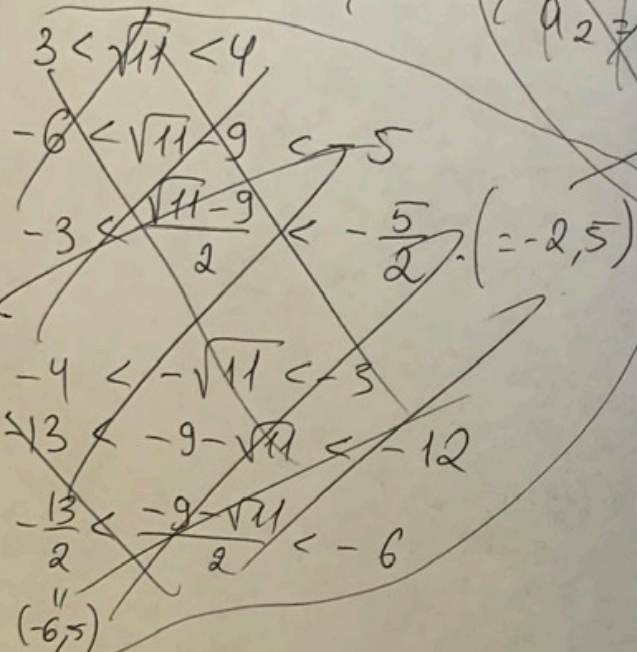 3 < √11 < 4
-6 < √11 - 9 < -5
-3 < (√11 - 9)/2 < -5/2. (= -2,5)
-4 < -√11 < -3
-13 < -9 - √11 < -12
-13/2 < (-9 - √11)/2 < -6
"
(-6,5)
a₂ =